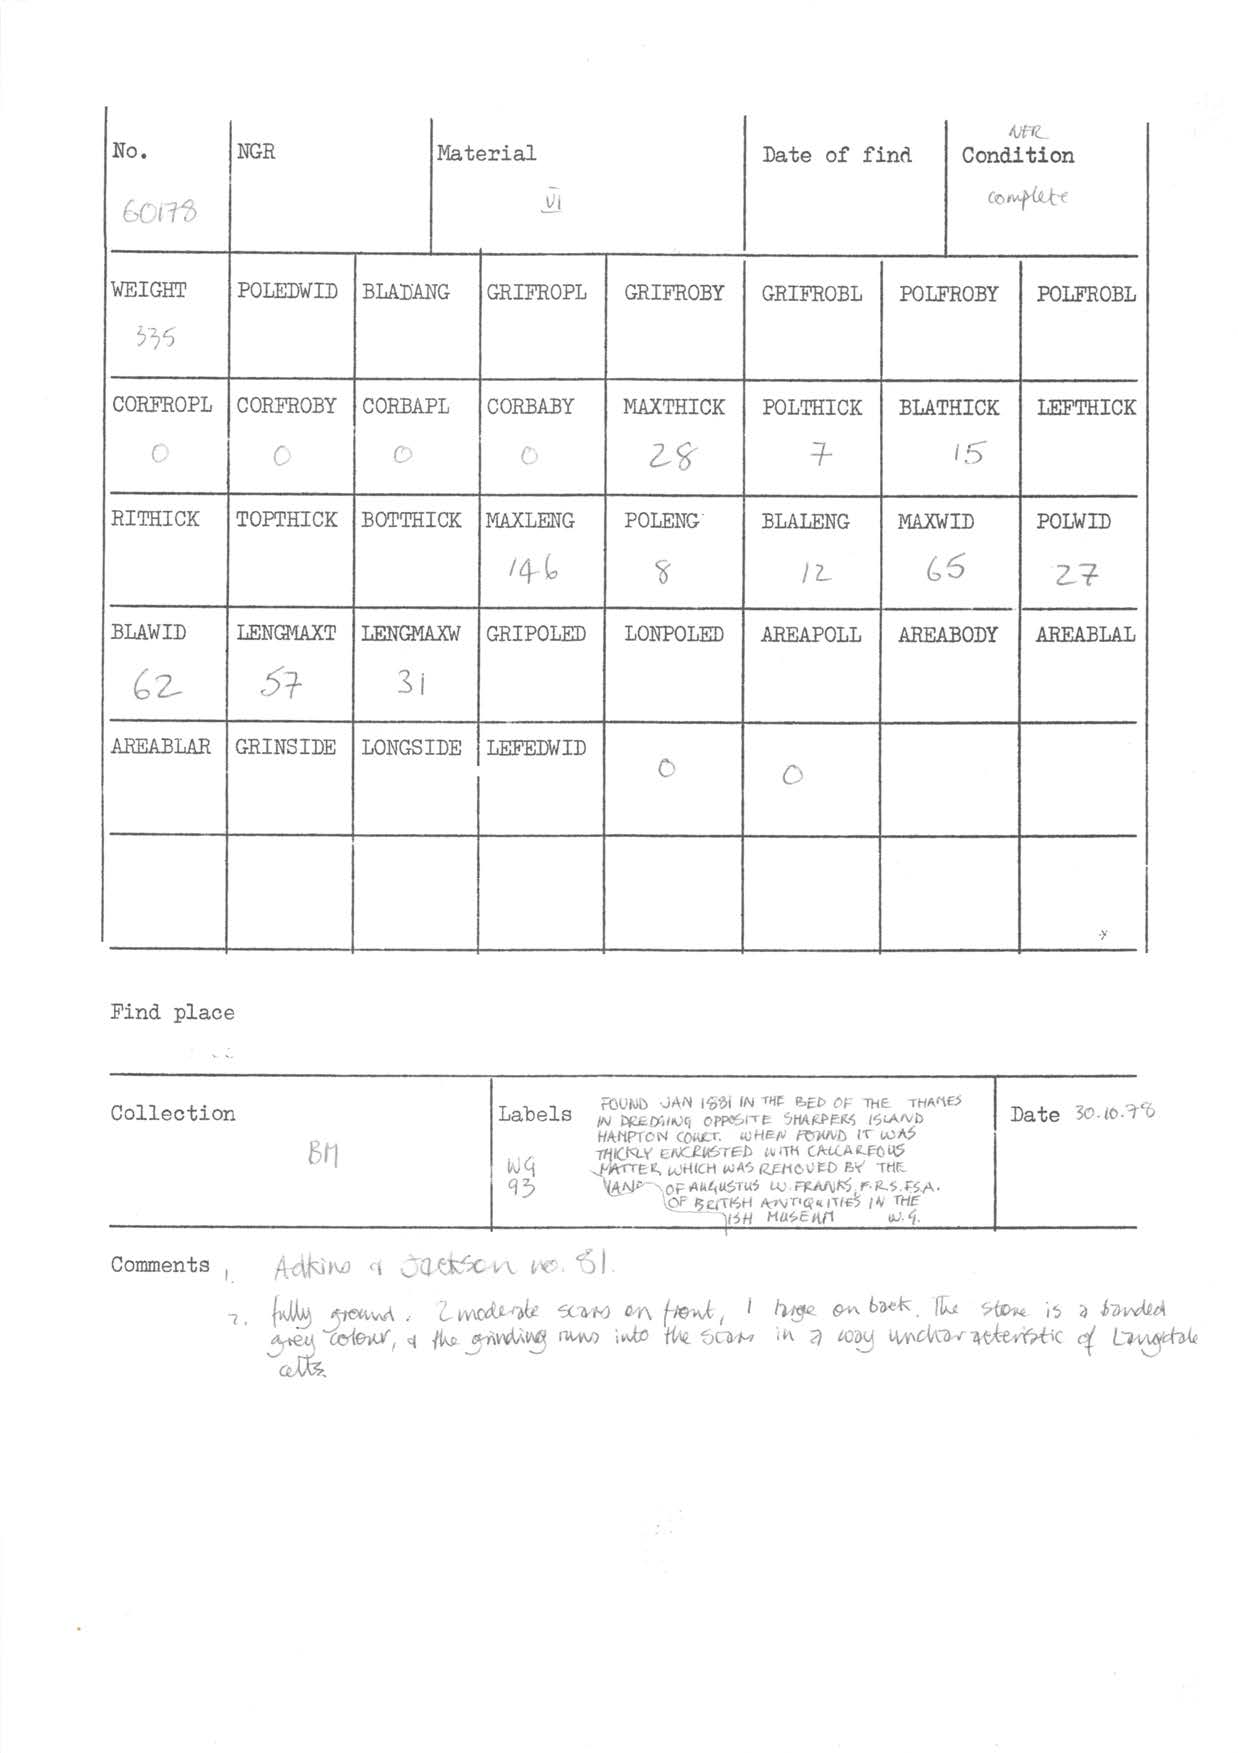 NFR
No. NGR Material Date of find Condition
60178 VI complete
WEIGHT POLEDWID BLADANG GRIFROPL GRIFROBY GRIFROBL POLFROBY POLFROBL
335
CORFROPL CORFROBY CORBAPL CORBABY MAXTHICK POLTHICK BLATHICK LEFTHICK
0 0 0 0 28 7 15
RITHICK TOPTHICK BOTTHICK MAXLENG POLENG BLALENG MAXWID POLWID
146 8 12 65 27
BLAWID LENGMAXT LENGMAXW GRIPOLED LONPOLED AREAPOLL AREABODY AREABLAL
62 57 31
AREABLAR GRINSIDE LONGSIDE LEFEDWID
0 0
Find place
Collection
BM
Labels
WG
93
FOUND JAN 1881 IN THE BED OF THE THAMES
IN DREDGING OPPOSITE SHARPERS ISLAND
HAMPTON COURT. WHEN FOUND IT WAS
THICKLY ENCRUSTED WITH CALCAREOUS
MATTER, WHICH WAS REMOVED BY THE
HAND OF AUGUSTUS W. FRANKS, F.R.S. F.S.A.
OF BRITISH ANTIQUITIES IN THE
ISH MUSEUM W.G.
Date 30.10.78
Comments 1. Adkins & Jackson no. 81.
2. fully ground. 2 moderate scars on front, 1 large on back. The stone is a banded
grey colour, & the grinding runs into the scars in a way uncharacteristic of Langdale
celts.